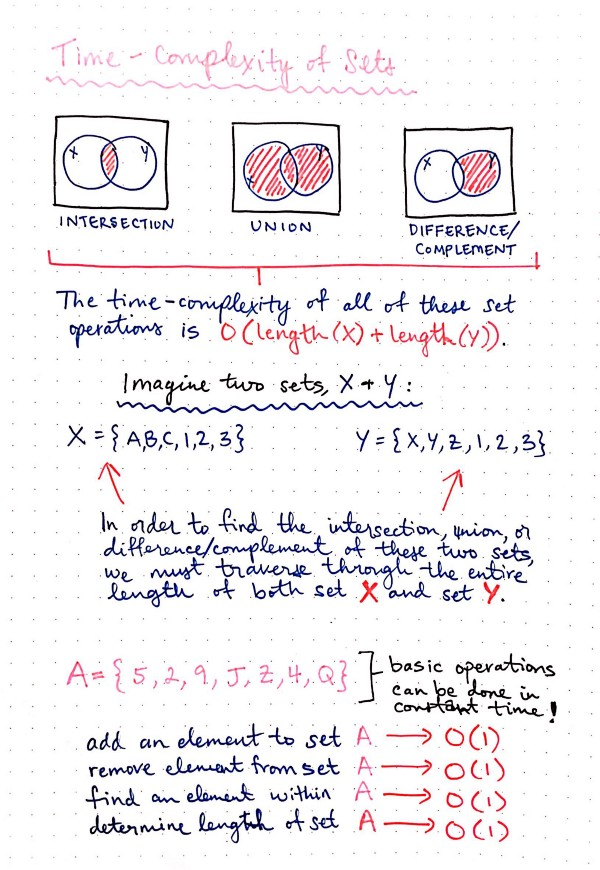 Time-Complexity of Sets
X Y
X Y
X Y
INTERSECTION
UNION
DIFFERENCE/
COMPLEMENT
The time-complexity of all of these set
operations is O(length(X) + length(Y)).
Imagine two sets, X + Y:
X = {A,B,C,1,2,3}
Y = {X,Y,Z,1,2,3}
In order to find the intersection, union, or
difference/complement of these two sets,
we must traverse through the entire
length of both set X and set Y.
A = {5, 2, 9, J, Z, 4, Q}
basic operations
can be done in
constant time!
add an element to set A → O(1)
remove element from set A → O(1)
find an element within A → O(1)
determine length of set A → O(1)